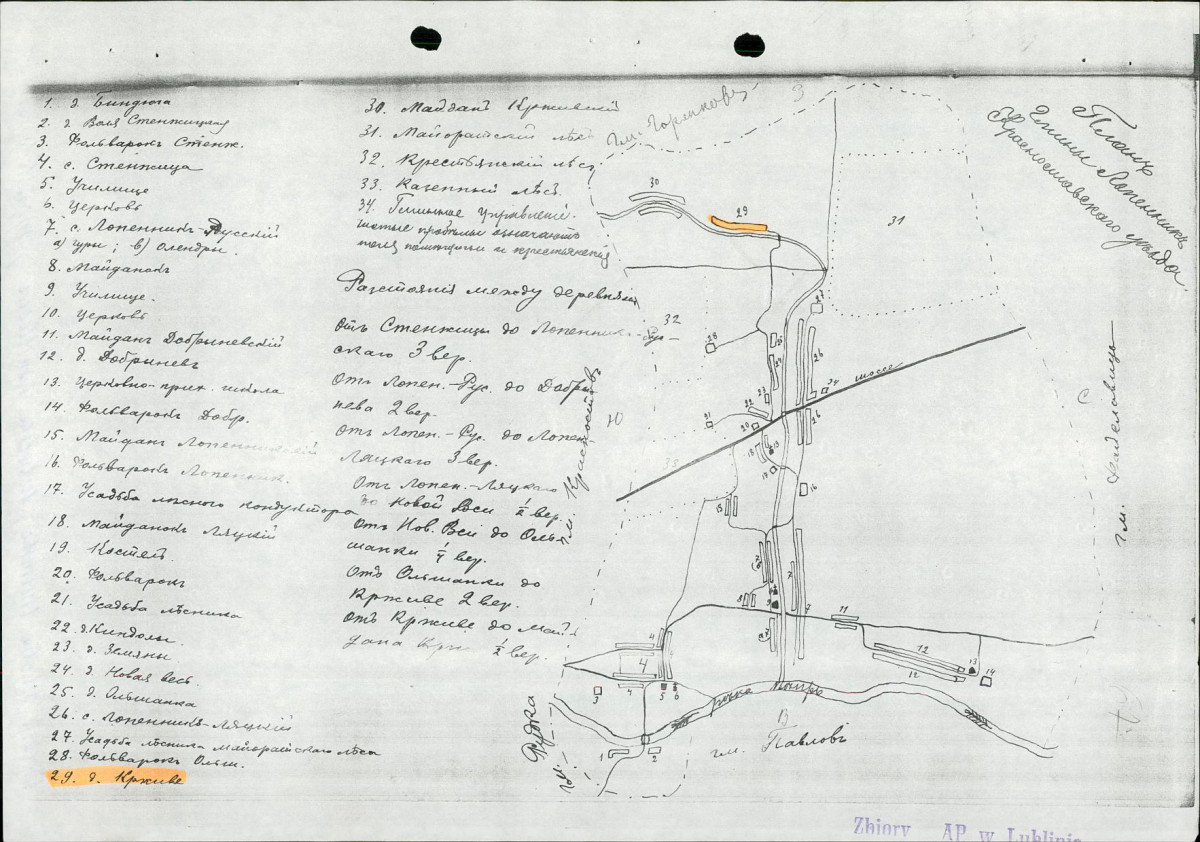 1. д. Биндюга
2. д. Воля Стенжицкая
3. Фольваркъ Стенж.
4. с. Стенжица
5. Училище
6. Церковь
7. с. Лопенникъ-Русскій
а) гуры; в) Олендры.
8. Майданокъ
9. Училище.
10. Церковь
11. Майданъ Добрыневскій
12. д. Добрыневъ
13. Церковно-прих. школа
14. Фольваркъ Добр.
15. Майданъ
16. Фольваркъ Лопенник.
17. Усадьба лѣсного кондуктора
18. Майданокъ Ляцкій
19. Костел.
20. Фольваркъ
21. Усадьба лѣсника
22. д. Киндолы.
23. д. Земяны.
24. д. Новая весь.
25. д. Ольшанка
26. с. Лопенникъ-Ляцкій
27. Усадьба лѣсника Майоратскаго лѣса
28. Фольваркъ Ольш.
29. д. Крживе
30. Майданъ Крживскій
31. Майоратскій лѣсъ
32. Крестьянскій лѣсъ
33. Казенный лѣсъ.
34. Гминное Управленіе.
означаютъ
поля и крестьянскія
Разстоянія между деревнями
отъ Стенжицы до Лопенник.-Рус-
скаго 3 вер.
Отъ Лопен.-Рус. до Добры-
нева 2 вер.
отъ Лопен.-Рус. до Лопен.
Ляцкаго 3 вер.
Отъ Лопен.-Ляцкаго
до Новой Веси 1/2 вер.
Отъ Нов. Вси до Оль-
шанки 1/4 вер.
Отъ Ольшанки до
Крживе 2 вер.
отъ Крживе до Май-
дана Крж 1/2 вер.
Планъ
Гмины Лопенникъ
Красноставскаго уѣзда
гм. Горжковъ
З
30
29
31
27
32
28
25
26
24
34
шоссе
23
22
21
20
26
Ю
гм. Красноставъ
С
гм.
33
19
18
17
16
15
7
8
9
11
12
12
13
14
4
4
4
3
5
6
рѣка Вепрь
1
2
В
гм. Павловъ
гм. Рудка
Zbiory AP w Lublinie